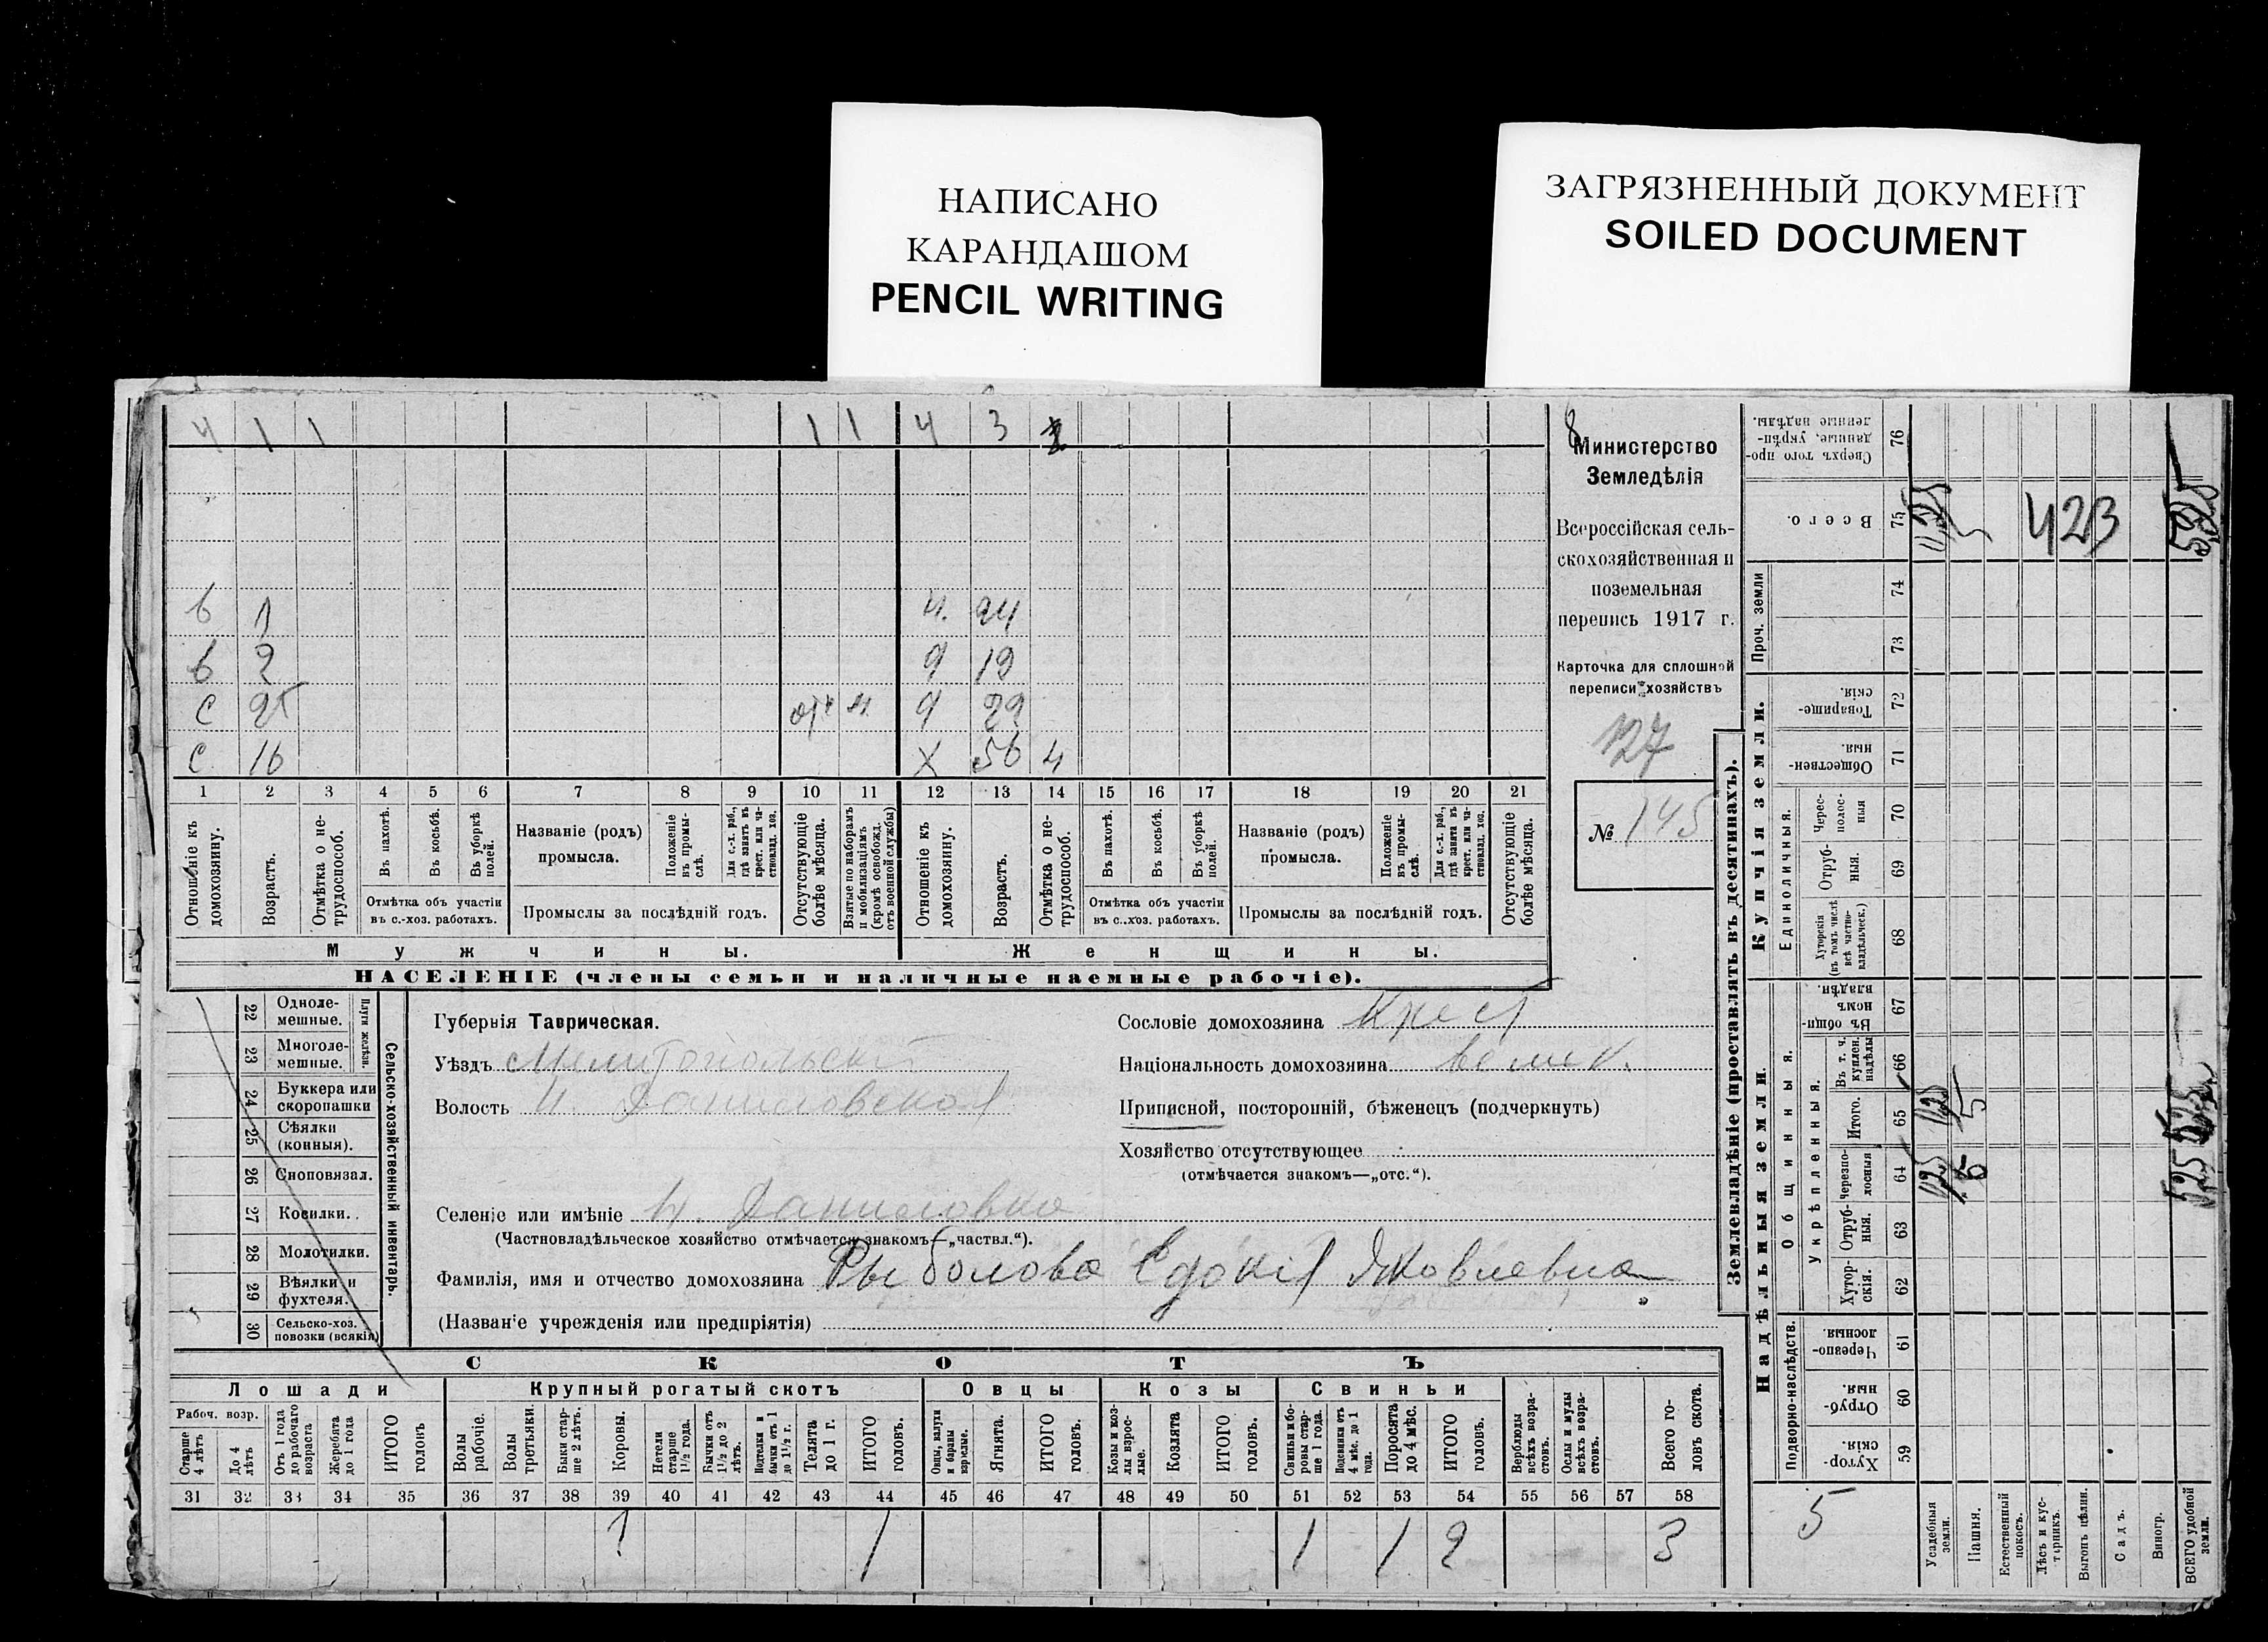 НАПИСАНО
КАРАНДАШОМ
PENCIL WRITING
ЗАГРЯЗНЕННЫЙ ДОКУМЕНТ
SOILED DOCUMENT
4 1 1 1 1 4 3
в 1 24
в 2 19
с 25 29
с 16 х 56 ч
1 2 3 4 5 6 7 8 9 10 11 12 13 14 15 16 17 18 19 20 21
Отношеніе къ домохозяину.
Возрастъ.
Отмѣтка о нетрудоспособ.
Въ пахотѣ.
Въ косьбѣ.
Въ уборкѣ полей.
Отмѣтка объ участіи въ с.-хоз. работахъ.
Названіе (родъ) промысла.
Положеніе въ промыслѣ.
Для с.-х. раб., гдѣ занятъ въ крест. или частновлад. хоз.
Промыслы за послѣдній годъ.
Отсутствующіе болѣе мѣсяца.
Взятые по наборамъ и мобилизаціямъ (кромѣ освобожд. отъ военной службы)
Отношеніе къ домохозяину.
Возрастъ.
Отмѣтка о нетрудоспособ.
Въ пахотѣ.
Въ косьбѣ.
Въ уборкѣ полей.
Отмѣтка объ участіи въ с.-хоз. работахъ.
Названіе (родъ) промысла.
Положеніе въ промыслѣ.
Для с.-х. раб., гдѣ занята въ крест. или частновлад. хоз.
Промыслы за послѣдній годъ.
Отсутствующіе болѣе мѣсяца.
Мужчины.
Женщины.
НАСЕЛЕНІЕ (члены семьи и наличные наемные рабочіе).
8
Министерство
Земледѣлія
Всероссійская сель-
скохозяйственная и
поземельная
перепись 1917 г.
Карточка для сплошной
переписи хозяйствъ
127
№ 145
22 Одноле-мешные.
23 Многоле-мешные.
Плуги желѣзн.
24 Буккера или скоропашки
25 Сѣялки (конныя).
26 Сноповязал.
27 Косилки.
28 Молотилки.
29 Вѣялки и фухтеля.
30 Сельско-хоз. повозки (всякія)
Сельско-хозяйственный инвентарь.
Губернія Таврическая.
Уѣздъ Мелитопольскій
Волость Н. Даниловская
Селеніе или имѣніе Н. Даниловка
(Частновладѣльческое хозяйство отмѣчается знакомъ—„частвл.“).
Фамилія, имя и отчество домохозяина Рыболова Едокія Яковлевна
(Названіе учрежденія или предпріятія)
Сословіе домохозяина Крест
Національность домохозяина велик.
Приписной, посторонній, бѣженецъ (подчеркнуть)
Хозяйство отсутствующее
(отмѣчается знакомъ—„отс.“).
СКОТЪ
Лошади
Крупный рогатый скотъ
Овцы
Козы
Свиньи
Рабоч. возр.
Старше 4 лѣтъ
До 4 лѣтъ
Отъ 1 года до рабочаго возраста
Жеребята до 1 года
ИТОГО головъ
Волы рабочіе.
Волы третьяки.
Быки старше 2 лѣтъ.
Коровы.
Нетели старше 1½ года.
Бычки отъ 1½ до 2 лѣтъ.
Подтелки и бычки отъ 1 до 1½ г.
Телята до 1 г.
ИТОГО головъ.
Овцы, валухи и бараны взрослые.
Ягнята.
ИТОГО головъ.
Козы и козлы взрослые.
Козлята
ИТОГО головъ.
Свиньи и боровы старше 1 года.
Подсвинки отъ 4 мѣс. до 1 года.
Поросята до 4 мѣс.
ИТОГО головъ.
Верблюды всѣхъ возрастовъ.
Ослы и мулы всѣхъ возрастовъ.
Всего головъ скота.
31 32 33 34 35 36 37 38 39 40 41 42 43 44 45 46 47 48 49 50 51 52 53 54 55 56 57 58
1 1 1 1 2 3
Землевладѣніе (проставлять въ десятинахъ).
Сверхъ того проданные, укрѣпленные надѣлы. 76
Всего. 75
423
Проч. земли 74 73
Купчія земли.
Товарищескія. 72
Общественныя. 71
Единоличныя.
Чересполосныя 70
Отрубныя. 69
Хуторскія (въ томъ числѣ всѣ частновладѣльческ.) 68
Надѣльныя земли.
Общинныя.
Въ общинномъ владѣн. 67
Укрѣпленныя.
Въ т. ч. куплен. надѣлы 66
Итого. 65
Черезполосныя 64
Отрубныя. 63
Хуторскія. 62
Подворно-наслѣдств.
Черезполосныя. 61
Отрубныя. 60
Хуторскія. 59
5
Усадебныя земли.
Пашня.
Естественный покосъ.
Лѣсъ и кустарникъ.
Выгонъ цѣлин.
Садъ.
Виногр.
ВСЕГО удобной земли.